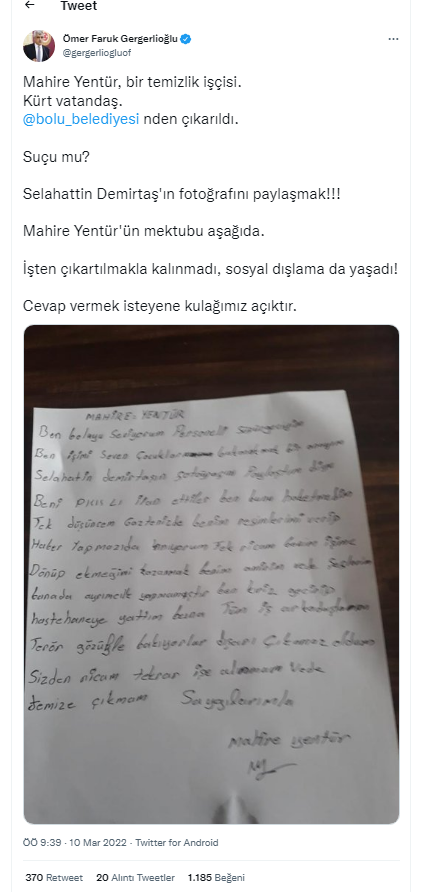 Tweet
Ömer Faruk Gergerlioğlu
@gergerliogluof
Mahire Yentür, bir temizlik işçisi.
Kürt vatandaş.
@bolu_belediyesi nden çıkarıldı.
Suçu mu?
Selahattin Demirtaş'ın fotoğrafını paylaşmak!!!
Mahire Yentür'ün mektubu aşağıda.
İşten çıkartılmakla kalınmadı, sosyal dışlama da yaşadı!
Cevap vermek isteyene kulağımız açıktır.
MAHİRE YENTÜR
Ben Personeli
Ben işimi Seven bir anneyim
Selahatin demirtaşın Paylaştım diye
Beni PKK Lı ilan ettiler ben bunu haketmedim
Tek düşüncem benim resimlerimi verip
Haber Tek ricam benim işime
Dönüp ekmeğimi kazanmak benim
banada ayrımcılık ben kriz geçirip
hastehaneye yattım bana Tüm iş arkadaşlarım
Terör gözüyle bakıyorlar dışarı Çıkamaz oldum
Sizden ricam tekrar işe alınmam vede
temize çıkmam Saygılarımla
Mahire yentür
ÖÖ 9:39 · 10 Mar 2022 · Twitter for Android
370 Retweet 20 Alıntı Tweetler 1.185 Beğeni